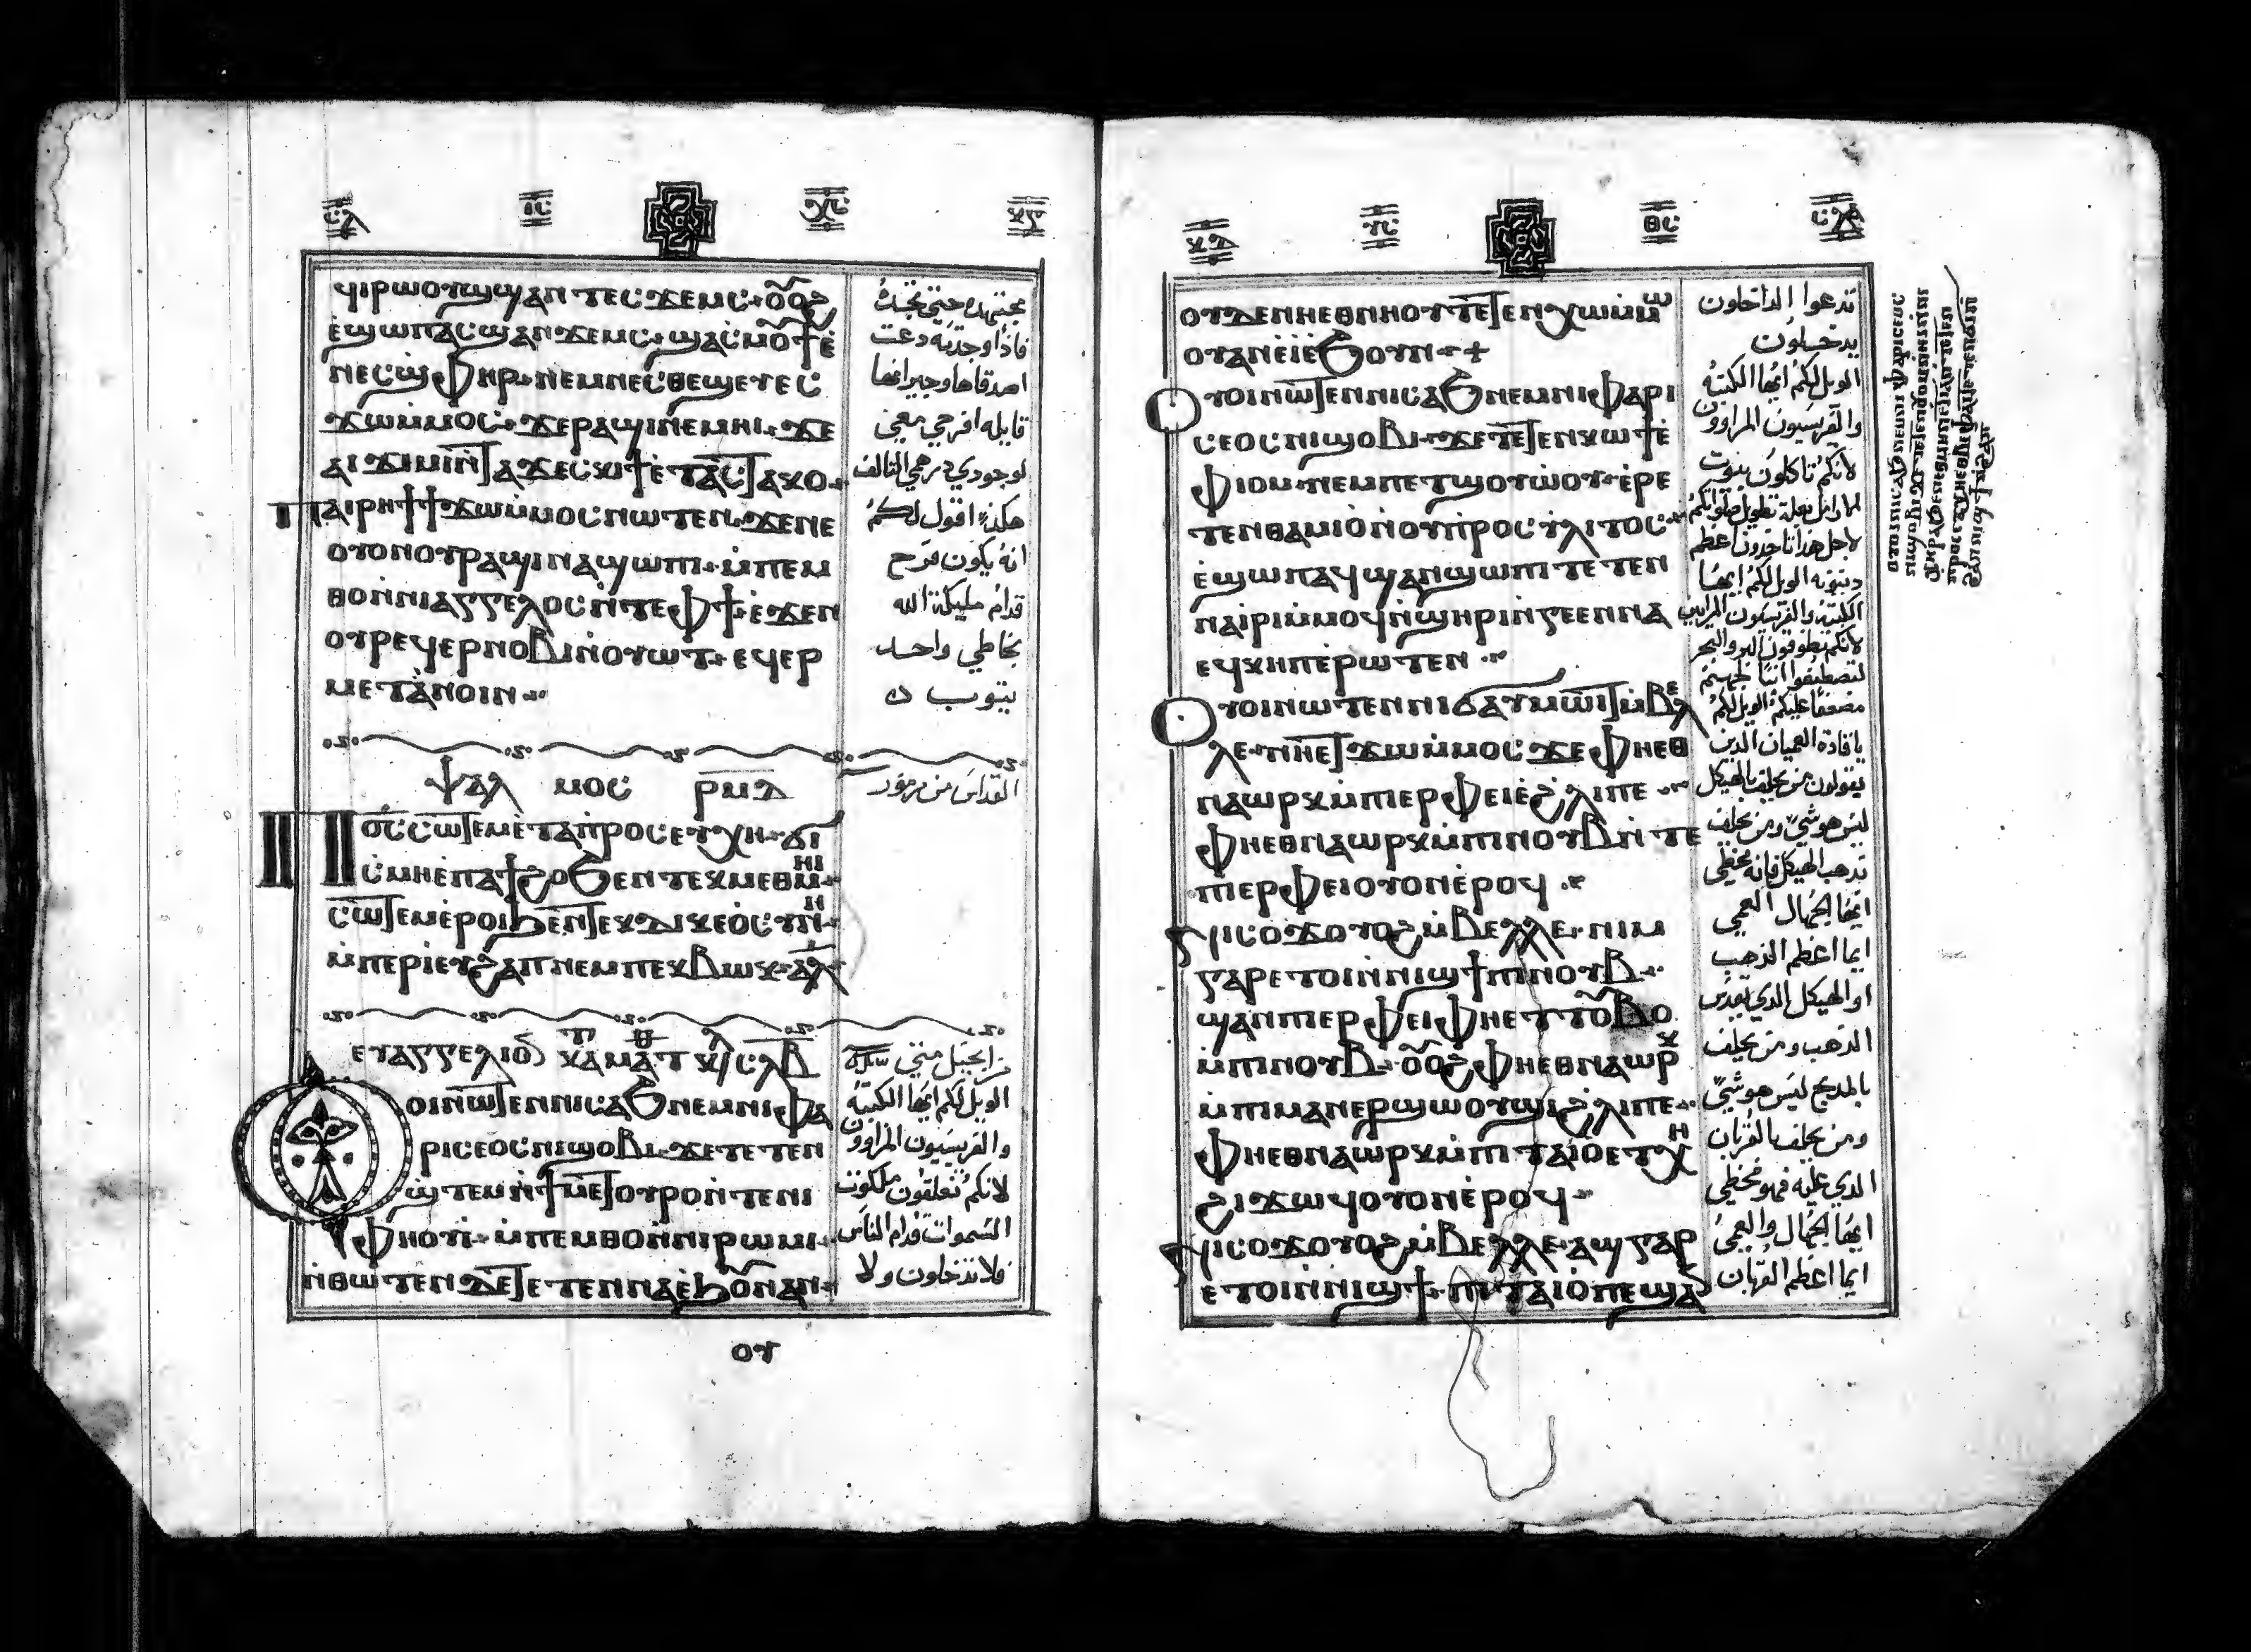 ϥⲓⲣⲱⲟⲩϣϣⲁⲛⲧⲉⲥϫⲉⲙⲥ ⲟⲩⲟϩ
ⲉ̀ϣⲱⲡⲁⲥϣⲁⲛϫⲉⲙⲥ ϣⲁⲥⲙⲟⲩϯⲉ̀
ⲛⲉⲥϣⲫⲏⲣ ⲛⲉⲙⲛⲉⲥⲑⲉϣⲉⲩ ⲉⲥ
ϫⲱⲙ̀ⲙⲟⲥ ϫⲉⲣⲁϣⲓⲛⲉⲙⲏⲓ ϫⲉ
ⲁⲓϫⲓⲙⲓⲛ̀ⲧⲁϫⲉⲥⲕⲓϯⲉ̀ⲧⲁⲥⲧⲁⲕⲟ
ⲡⲁⲓⲣⲏϯϯϫⲱⲙ̀ⲙⲟⲥⲛⲱⲧⲉⲛ ϫⲉⲛⲉ
ⲟⲩⲟⲛⲟⲩⲣⲁϣⲓⲛⲁϣⲱⲡⲓ ⲙ̀ⲡⲉⲙ
ⲑⲟⲛ̀ⲛⲓⲁⲅⲅⲉⲗⲟⲥⲛ̀ⲧⲉⲫϯ ⲉ̀ϫⲉⲛ
ⲟⲩⲣⲉϥⲉⲣⲛⲟⲃⲓⲛ̀ⲟⲩⲱⲧ ⲉϥⲉⲣ
ⲙⲉⲧⲁⲛⲟⲓⲛ
مجتهده حتي تجده
فاذا وجدته دعت
اصدقاها وجيرانها
قايله افرحي معي
لوجودي درهمي التالف
هكذا اقول لكم
انه يكون فرح
قدام مليكة الله
بخاطي واحد
يتوب
ⲯⲁⲗⲙⲟⲥ ⲣⲙⲇ
القداس من مزمور
ⲡⲟ̅ⲥ̅ ⲥⲱⲧⲉⲙⲉ̀ⲧⲁⲡ̀ⲣⲟⲥⲉⲩⲭⲏ ϭⲓ
ⲥⲙⲏⲉ̀ⲡⲁϯϩⲟϧⲉⲛⲧⲉⲕⲙⲉⲑⲙⲏⲓ
ⲥⲱⲧⲉⲙⲉ̀ⲣⲟⲓϧⲉⲛⲧⲉⲕⲇⲓⲕⲉⲟⲥⲩⲛⲏ
ⲙ̀ⲡⲉⲣⲓⲉⲩϩⲁⲡⲛⲉⲙⲡⲉⲕⲃⲱⲕ ⲁⲗ
ⲉⲩⲁⲅⲅⲉⲗⲓⲟⲛ ⲕⲁⲧⲁ ⲙⲁⲧⲑ
من انجيل متي
ⲟⲩⲟⲓⲛⲱⲧⲉⲛⲛⲓⲥⲁϧⲛⲉⲙⲛⲓⲫⲁ
ⲣⲓⲥⲉⲟⲥⲛⲓϣⲟⲃⲓ ϫⲉⲧⲉⲧⲉⲛ
ϣⲧⲉⲙⲛ̀ϯⲙⲉⲧⲟⲩⲣⲟⲛ̀ⲧⲉⲛⲓ
ⲫⲏⲟⲩⲓ ⲙ̀ⲡⲉⲙⲑⲟⲛ̀ⲛⲓⲣⲱⲙⲓ
ⲛ̀ⲑⲱⲧⲉⲛϫⲉⲧⲉⲧⲉⲛⲛⲁⲉ̀ϧⲟⲩⲛⲁⲛ
الويل لكم ايها الكتبه
والفريسيون المراوون
لانكم تغلقون ملكوت
السموات قدام الناس
فلا تدخلون ولا
ⲟⲩ
ⲟⲩⲇⲉⲛⲏⲉⲑⲛⲏⲟⲩⲧⲉⲧⲉⲛⲭⲱⲙ̀ⲙⲱ
ⲟⲩⲁⲛⲉ̀ⲓ̀ⲉ̀ϧⲟⲩⲛ
ⲟⲩⲟⲓⲛⲱⲧⲉⲛⲛⲓⲥⲁϧⲛⲉⲙⲛⲓⲫⲁⲣⲓ
ⲥⲉⲟⲥⲛⲓϣⲟⲃⲓ ϫⲉⲧⲉⲧⲉⲛⲕⲱϯⲉ̀
ⲫⲓⲟⲙ ⲛⲉⲙⲡⲉⲧϣⲟⲩⲱⲟⲩ ⲉ̀ⲣⲉ
ⲧⲉⲛⲑⲁⲙⲓⲟⲛ̀ⲟⲩⲡ̀ⲣⲟⲥⲩⲗⲓⲧⲟⲥ
ⲉ̀ϣⲱⲡⲁϥϣⲁⲛϣⲱⲡⲓ ⲧⲉⲧⲉⲛ
ⲛⲁⲓⲣⲓⲙ̀ⲙⲟϥⲛ̀ϣⲏⲣⲓⲛ̀ⲅⲉⲉⲛⲛⲁ
ⲉϥⲕⲏⲡⲉ̀ⲣⲱⲧⲉⲛ
ⲟⲩⲟⲓⲛⲱⲧⲉⲛⲛⲓϭⲁⲩⲙⲱⲓⲧⲙ̀ⲃⲉⲗ
ⲗⲉ ⲛⲏⲉⲧϫⲱⲙ̀ⲙⲟⲥ ϫⲉⲫⲏⲉⲑ
ⲛⲁⲱⲣⲕⲙ̀ⲡⲓⲉⲣⲫⲉⲓⲉ̀ϩⲗⲓⲡⲉ
ⲫⲏⲉⲑⲛⲁⲱⲣⲕⲙ̀ⲡⲛⲟⲩⲃⲛ̀ⲧⲉ
ⲡⲓⲉⲣⲫⲉⲓⲟⲩⲟⲛⲉ̀ⲣⲟϥ
ⲛⲓⲥⲟϫⲟⲩⲟϩⲙ̀ⲃⲉⲗⲗⲉ ⲛⲓⲙ
ⲅⲁⲣⲉⲧⲟⲓⲛ̀ⲛⲓϣϯⲡⲛⲟⲩⲃ
ϣⲁⲛⲡⲓⲉⲣⲫⲉⲓⲫⲏⲉⲧⲧⲟⲩⲃⲟ
ⲙ̀ⲡⲛⲟⲩⲃ ⲟⲩⲟϩⲫⲏⲉⲑⲛⲁⲱⲣⲕ
ⲙ̀ⲡⲓⲙⲁⲛⲉⲣϣⲱⲟⲩϣⲓϩⲗⲓⲡⲉ
ⲫⲏⲉⲑⲛⲁⲱⲣⲕⲙ̀ⲡⲓⲧⲁⲓⲟⲉⲧⲭⲏ
ϩⲓϫⲱϥⲟⲩⲟⲛⲉ̀ⲣⲟϥ
ⲛⲓⲥⲟϫⲟⲩⲟϩⲙ̀ⲃⲉⲗⲗⲉ ⲁϣⲅⲁⲣ
ⲉⲧⲟⲓⲛ̀ⲛⲓϣϯ ⲡⲓⲧⲁⲓⲟⲡⲉϣⲁ
تدعوا الداخلون
يدخلون
الويل لكم ايها الكتبه
والفريسيون المراوون
لانكم تاكلون بيوت
الارامل بعلة تطويل صلواتكم
لاجل هذا تاخذون اعظم
دينونه الويل لكم ايها
الكتبه والفريسيون المرايين
لانكم تطوفون البر والبحر
لتصطنعوا
مضعفا عليكم الويل لكم
يا قادة العميان الذين
يقولون من يحلف بالهيكل
ليس هو شي ومن يحلف
بذهب الهيكل فانه يخطي
ايها الجهال العمي
ايما اعظم الذهب
او الهيكل الذي يقدس
الذهب ومن يحلف
بالمذبح ليس هو شي
ومن يحلف بالقربان
الذي عليه فهو يخطي
ايها الجهال والعمي
ايما اعظم القربان